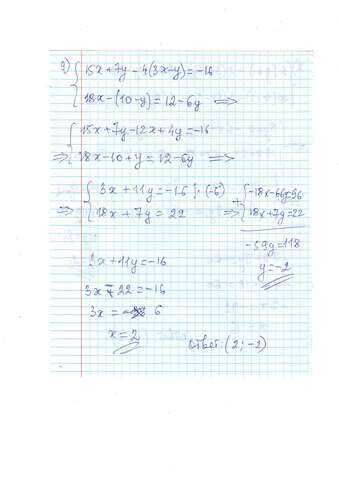 2) { 15x+7y-4(3x-y)=-16
18x-(10-y)=12-6y ⟹
{ 15x+7y-12x+4y=-16
⟹ 18x-10+y=12-6y ⟹
⟹ { 3x+11y=-16 | · (-6)
18x+7y=22
⟹ + { -18x-66y=96
18x+7y=22
-59y=118
y=-2
3x+11y=-16
3x-22=-16
3x= 6
x=2
Ответ (2;-2)